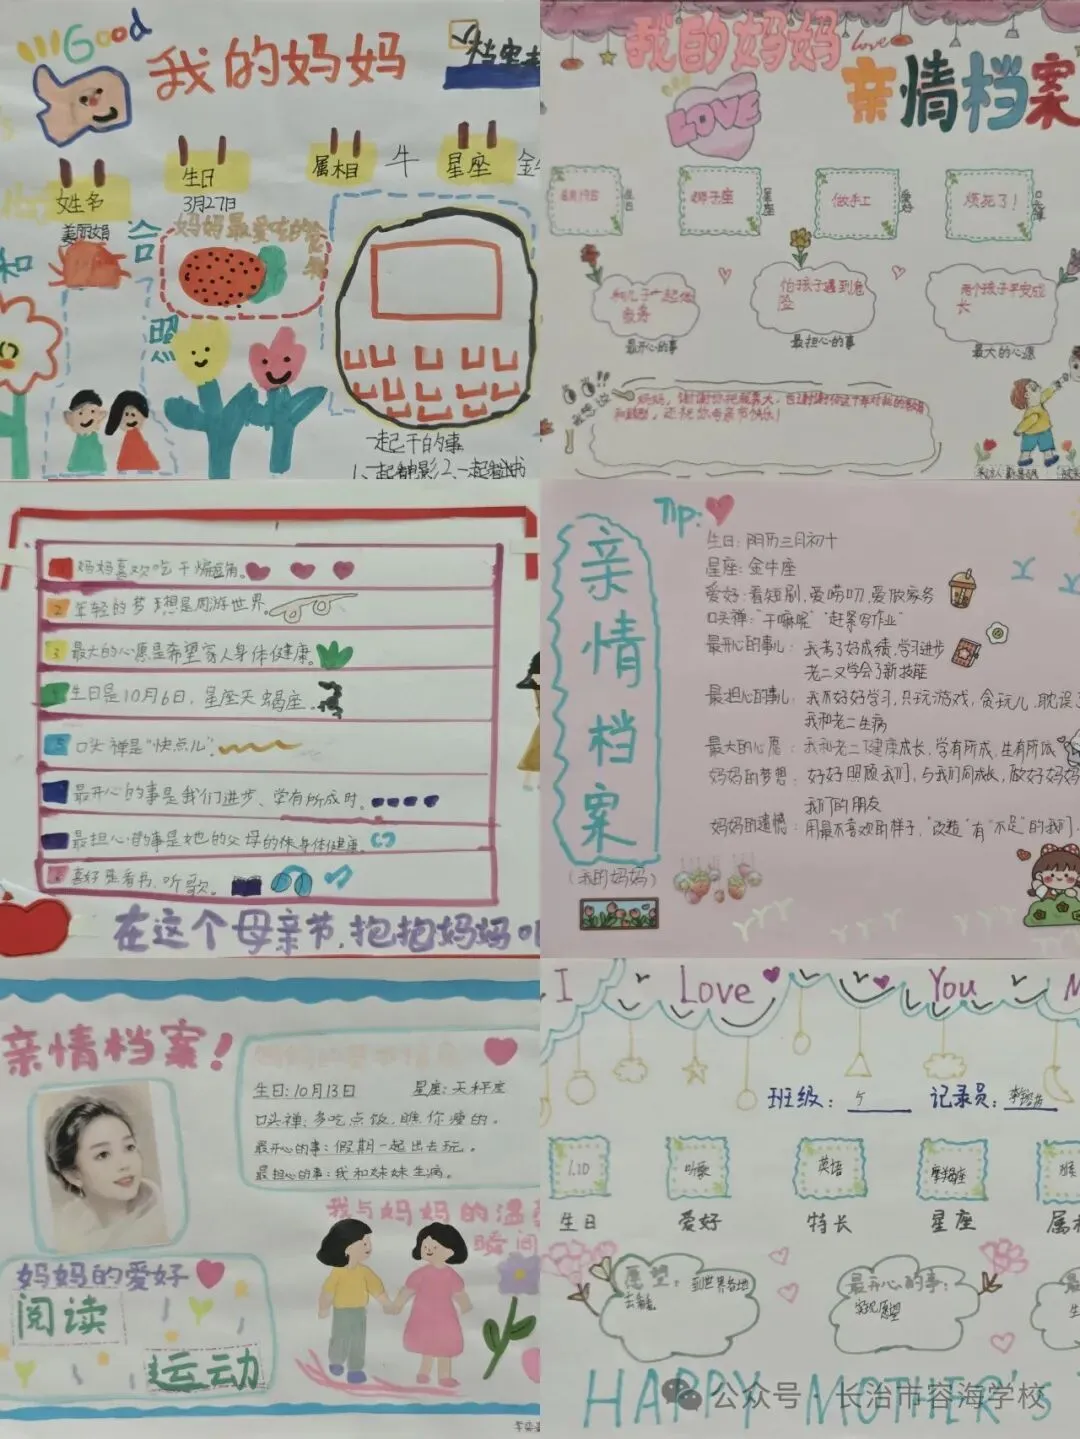 Good
我的妈妈
姓名
美丽娟
生日
3月27日
属相
牛
星座
妈妈最爱吃的
和
合
照
一起干的事
1、一起看电影 2、一起看书
我的妈妈
love
亲情档案
LOVE
8月19日
生日
狮子座
星座
做手工
爱好
烦死了!
口头禅
最开心的事
怕孩子遇到危险
最担心的事
两个孩子平安成长
最大的心愿
我想说
妈妈喜欢吃干煸豆角。
2 年轻的梦想是周游世界。
3 最大的心愿是希望家人身体健康。
4 生日是10月6日,星座天蝎座。
5 口头禅是“快点儿”。
最开心的事是我们进步、学有所成时。
最担心的事是她的父母的身体健康。
喜好是看书、听歌。
在这个母亲节,抱抱妈妈吧
亲情档案
(我的妈妈)
Tip:
生日:阴历三月初十
星座:金牛座
爱好:看短剧,爱唠叨,爱做家务
口头禅:“干嘛呢”“赶紧写作业”
最开心的事儿:我考了好成绩,学习进步
老二又学会了新技能
最担心的事儿:我不好好学习,只玩游戏,贪玩儿,耽误了
我和老二生病
最大的心愿:我和老二健康成长,学有所成,生有所依
妈妈的梦想:好好照顾我们,与我们同成长,做好妈妈
我们的朋友
妈妈的遗憾:用最不喜欢的样子,“改造”有“不足”的我们
亲情档案!
生日:10月13日
星座:天秤座
口头禅:多吃点饭,瞧你瘦的。
最开心的事:假期一起出去玩。
最担心的事:我和妹妹生病。
我与妈妈的温
瞬间
妈妈的爱好
阅读
运动
I Love You M
班级:
记录员:
1.10
生日
听歌
爱好
英语
特长
摩羯座
星座
猴
属相
愿望:到世界各地
去看看
最开心的事:
实现愿望
HAPPY MOTHER'S
公众号·长治市容海学校